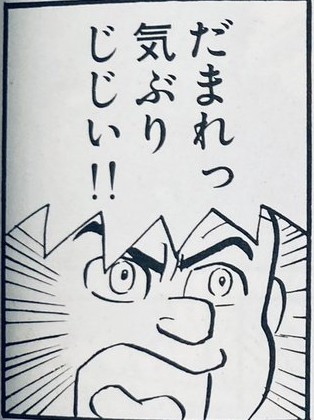 だまれっ
気ぶり
じじい!!